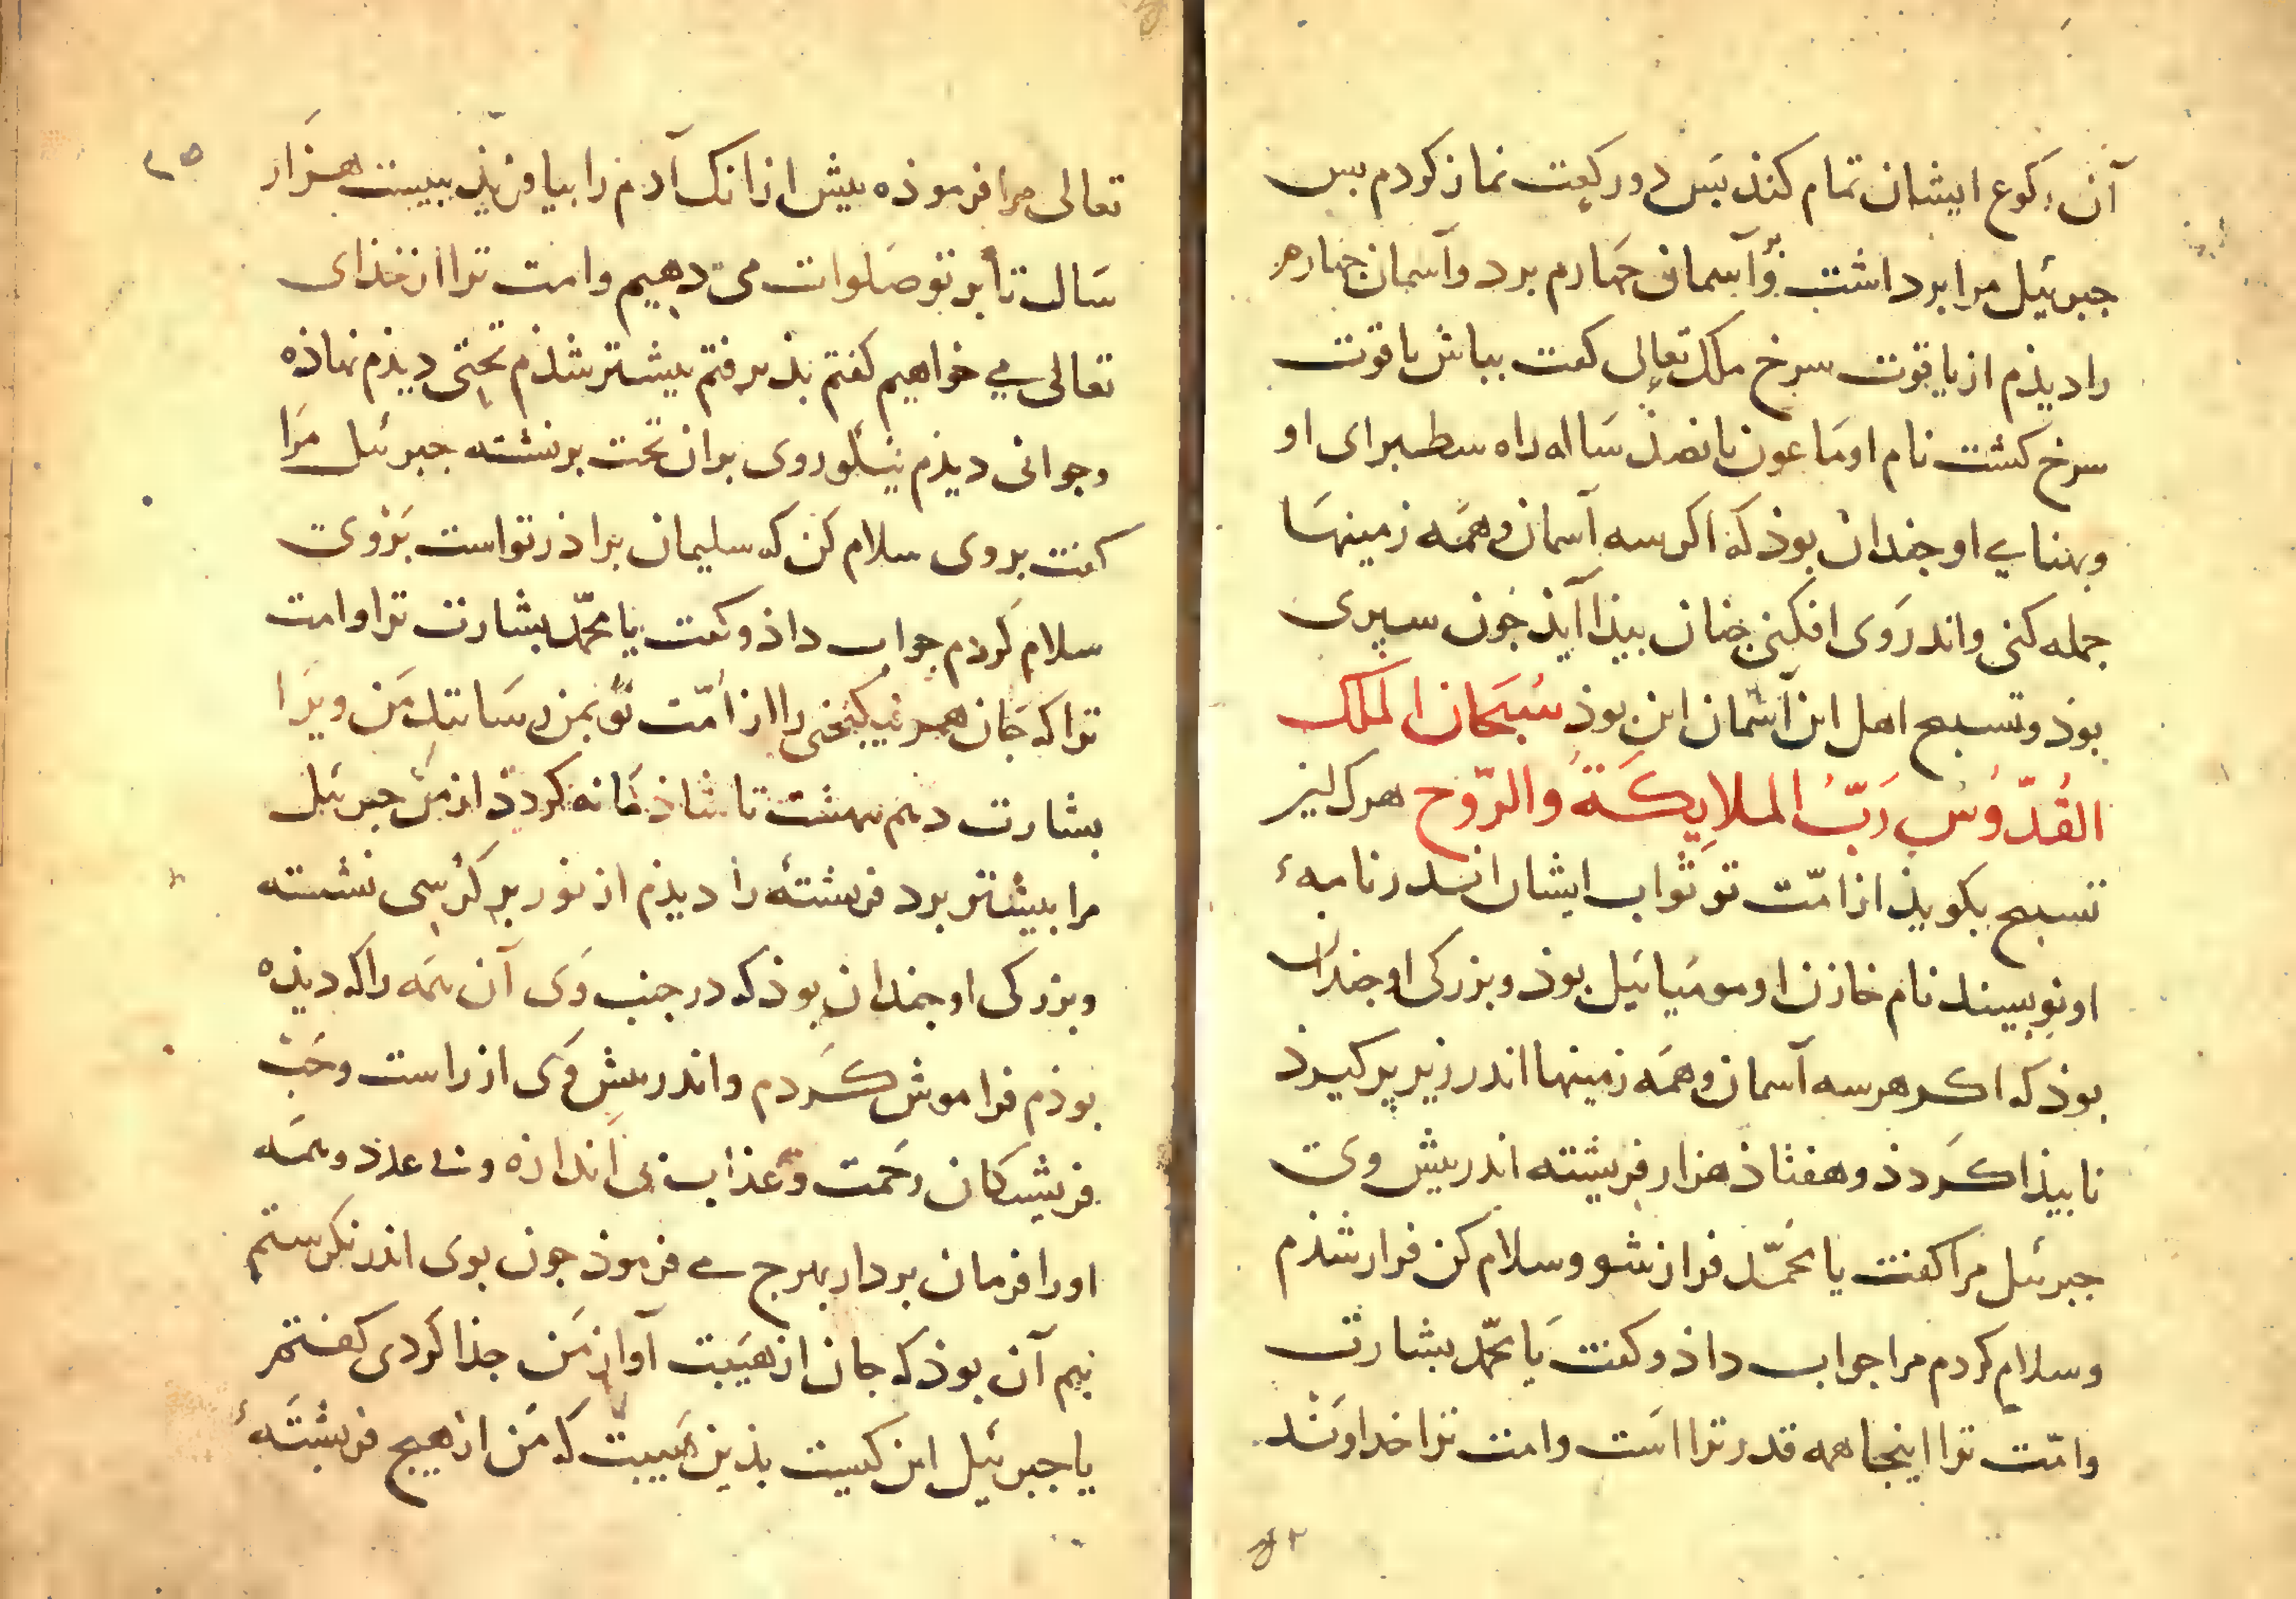 آن رکوع ایشان تمام کنذ بَس دو رکعت نماز کردم بس
جبرئیل مرا برداشت وٓ آسمان جهارم برد و آسمان جهارم
را دیذم از یاقوت سرخ ملک تعالی کفت بباش یاقوت
سرخ کشت نام او مَاعون بانصذ سَاله راه سطبرای او
و بهنایے او جندان بوذ که اکر سه آسمان و همَه زمینهَا
جمله کنی و اندر وَی افکنی جنان بیذا آیذ جون سپری
بوذ و تسبیح اهل این آسمان این بوذ سُبحَان الملک
القُدّوُس رَبّ الملایِکَةُ والرّوح هرک این
تسبیح بکویذ از امّت تو ثواب ایشان اندر نامهٔ
او نویسند نام خازن او مومیائیل بوذ و بزرکی او جندان
بوذ که اکر هر سه آسمان و همَه زمینها اندر زیر پر کیرذ
نابیذا کَردذ و هفتاذ هزار فریشته اندر بیش وی
جبرئیل مرا کفت یا محَمّد فراز شو و سلام کن فراز شذم
و سلام کردم مرا جواب داذ و کفت یَا محمّد بشارت
و امّت ترا اینجا همه قدر ترا است و امت ترا خداوند
٢٥
تعالی مرا فرموذه بیش از انک آدم را بیافریذ ببیست هزار
سَال تا بر تو صَلوات می دهیم و امت ترا از خذای
تعالی مے خواهیم کفتم بذیرفتم بیشتر شذم تختی دیذم نهاذه
و جوانی دیذم نیکو روی بران تخت برنشته جبرئیل مَرَا
کفت بروی سلام کن که سلیمان براذر تو است بَرْوی
سلام کَردم جواب داذ و کفت یا محمّد بشارت ترا و امت
ترا که جَان هر نیکبختی را از امّت تو بمن رسَانند مَن ویرَا
بشارت دهم ببهشت تا شاذمَانه کردد از مَن جبرئیل
مرا بیشتر برد فریشتهٔ را دیذم از نور بر کُرسِی نشسته
و بزرکی او جندان بوذ که در جنب وَی آن همَه را که دیذه
بوذم فراموش کَردم و اندر بیش وَی از راست و جَب
فریشتکان رحَمت و عذاب بی اَندازه و بے عدد و همَه
او را فرمان بردار بهرج مے فرموذ جون بوی اندر نکرستم
بیم آن بوذ که جان از هَیبت آواز مَن جذا کَردی کفتم
یا جبرئیل این کیست بذین هَیبت که مَن از هیچ فریشتَهٔ